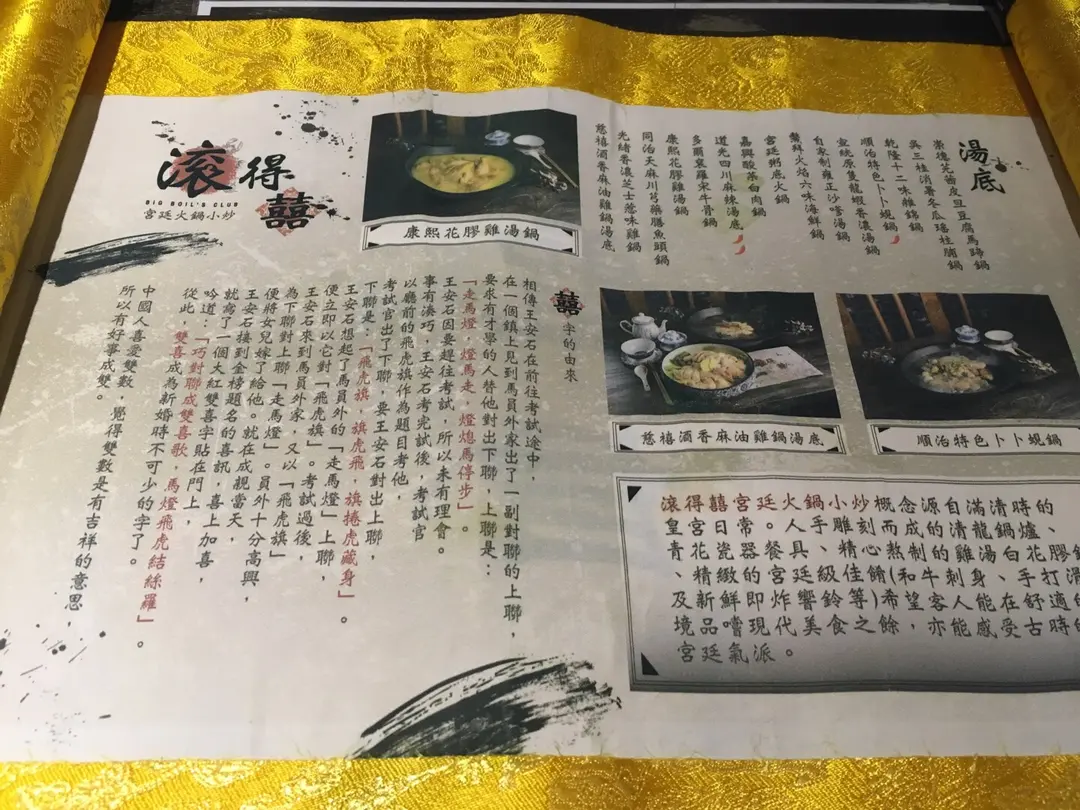 滾得囍
BIG BOIL'S CLUB
宮廷火鍋小炒
康熙花膠雞湯鍋
湯底
崇德芫茜皮旦豆腐馬蹄鍋
吳三桂消暑冬瓜瑤柱脯鍋
乾隆十二味雜錦鍋
順治特色卜卜蜆鍋
宣統原隻龍蝦香濃湯鍋
自家制雍正沙嗲湯鍋
鰲拜火焰六味海鮮鍋
宮廷粥底火鍋
嘉興酸菜白肉鍋
道光四川麻辣湯底
多爾袞羅宋牛骨鍋
康熙花膠雞湯鍋
同治天麻川芎藥膳魚頭鍋
光緒香濃芝士蔥味雞鍋
慈禧酒香麻油雞鍋湯底
囍字的由來
相傳王安石在前往考試途中，
在一個鎮上見到馬員外家出了一副對聯的上聯，
要求有才學的人替他對出下聯，上聯是：
「走馬燈，燈馬走，燈熄馬停步」。
王安石因要趕往考試，所以未有理會。
事有湊巧，王安石考完試後，考試官
以廳前的飛虎旗作為題目考他，
考試官出了下聯，要王安石對出上聯，
下聯是：「飛虎旗，旗虎飛，旗捲虎藏身」。
王安石想起了馬員外的「走馬燈」上聯，
便立即以它對「飛虎旗」。考試過後，
王安石來到馬員外家，又以「飛虎旗」
為下聯對上聯「走馬燈」。員外十分高興，
便將女兒嫁了給他。就在成親當天，
王安石接到金榜題名的喜訊，喜上加喜，
就寫了一個大紅雙喜字貼在門上，
吟道：「巧對聯成雙喜歌，馬燈飛虎結絲羅」。
從此，雙喜成為新婚時不可少的字了。
中國人喜愛雙數，覺得雙數是有吉祥的意思，
所以有好事成雙。
慈禧酒香麻油雞鍋湯底
順治特色卜卜蜆鍋
滾得囍宮廷火鍋小炒概念源自滿清時的
皇宮日常。人手雕刻而成的清龍鍋爐、
青花瓷器餐具、精心熬制的雞湯白花膠鍋
、精緻的宮廷級佳餚(和牛刺身、手打滑
及新鮮即炸響鈴等)希望客人能在舒適的
境品嚐現代美食之餘，亦能感受古時的
宮廷氣派。